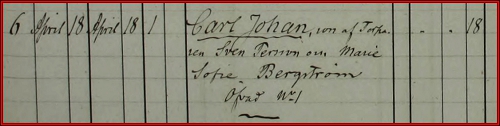 6 April 18 April 18 1 Carl Johan, son af Torpa-
ren Sven Person och Marie
Sofie Bergström
Ofvad No 1
18